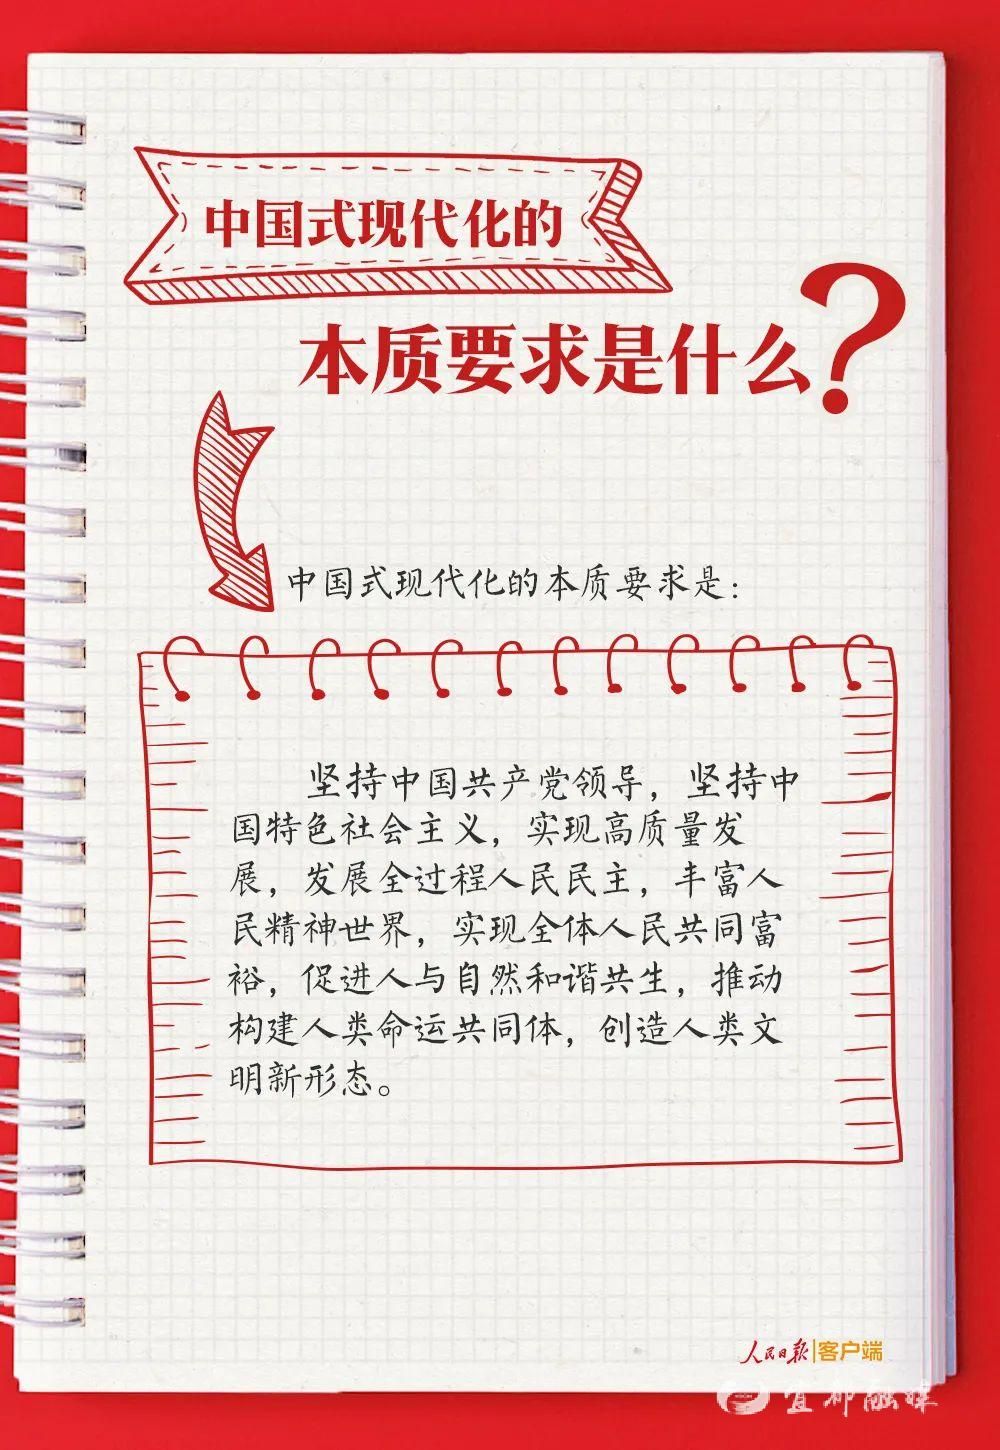 中国式现代化的
本质要求是什么?
中国式现代化的本质要求是：
坚持中国共产党领导，坚持中
国特色社会主义，实现高质量发
展，发展全过程人民民主，丰富人
民精神世界，实现全体人民共同富
裕，促进人与自然和谐共生，推动
构建人类命运共同体，创造人类文
明新形态。
人民日报|客户端
宜都融媒